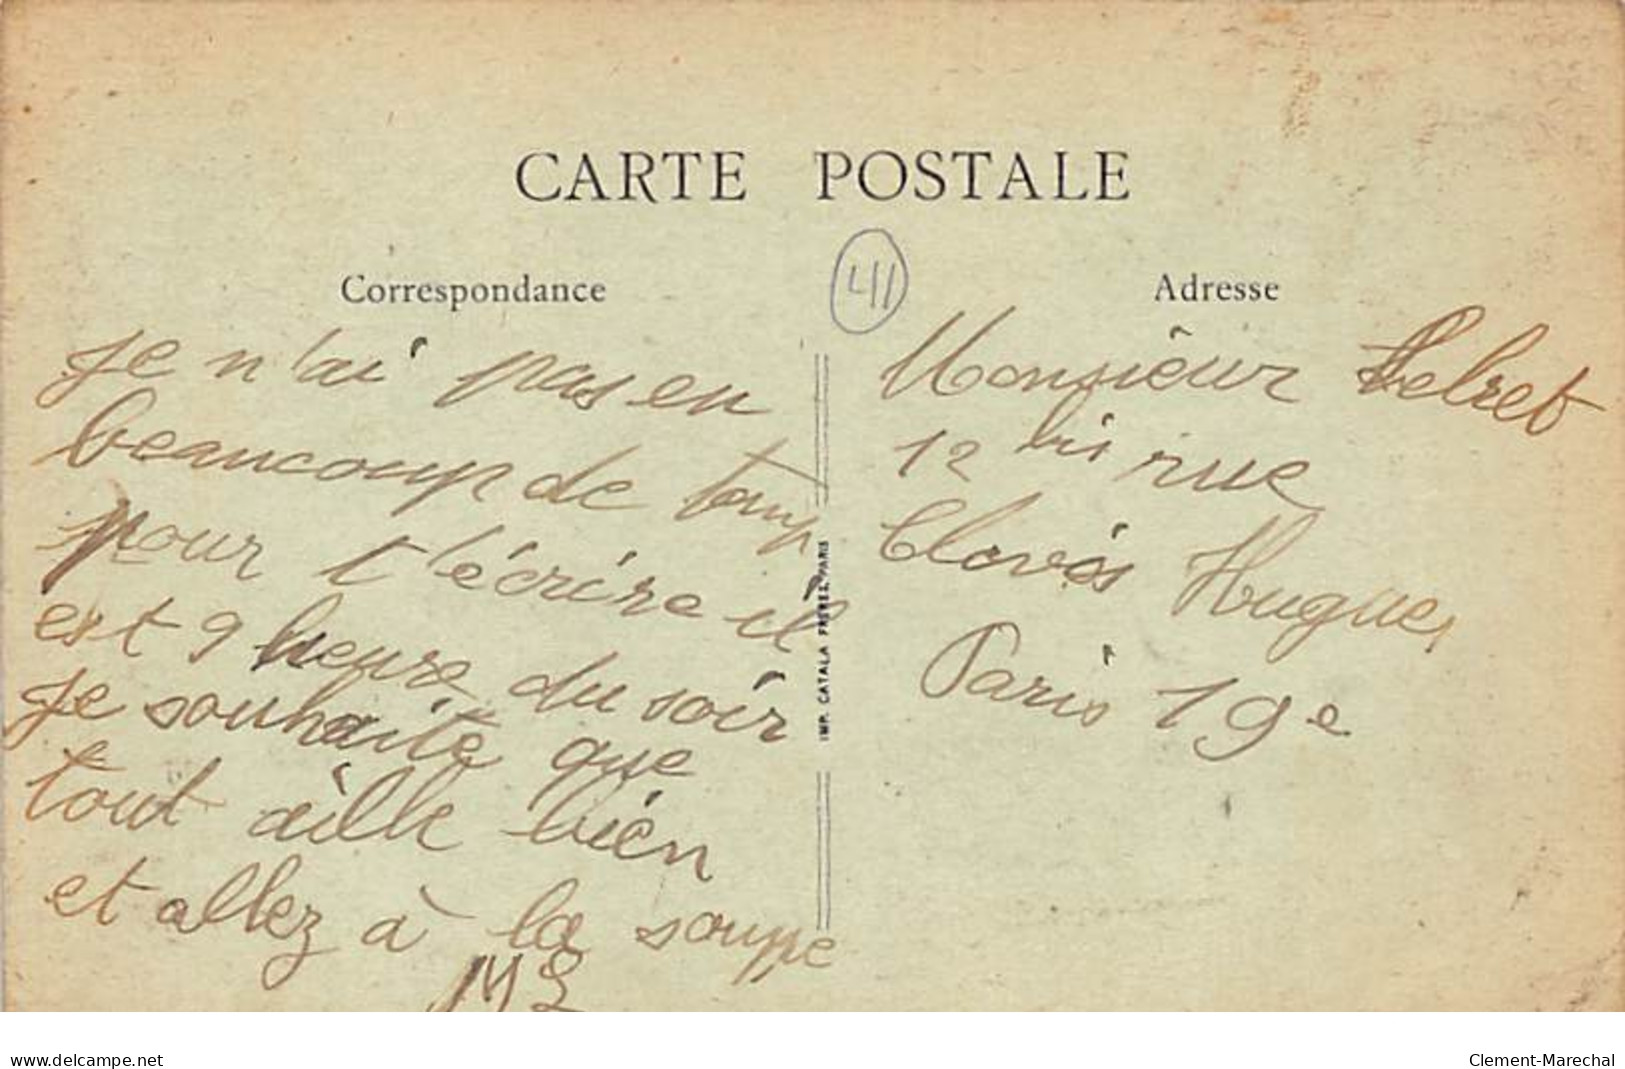 CARTE POSTALE
Correspondance
je n'ai pas eu
beaucoup de temp
pour t'écrire il
est 9 heure du soir
je souhaite que
tout aille bien
et allez à la soupe
ML
IMP. CATALA FRERES, PARIS
411
Adresse
Monsieur Lebret
12 bis rue
Clovis Hugues
Paris 19e
www.delcampe.net
Clement-Marechal